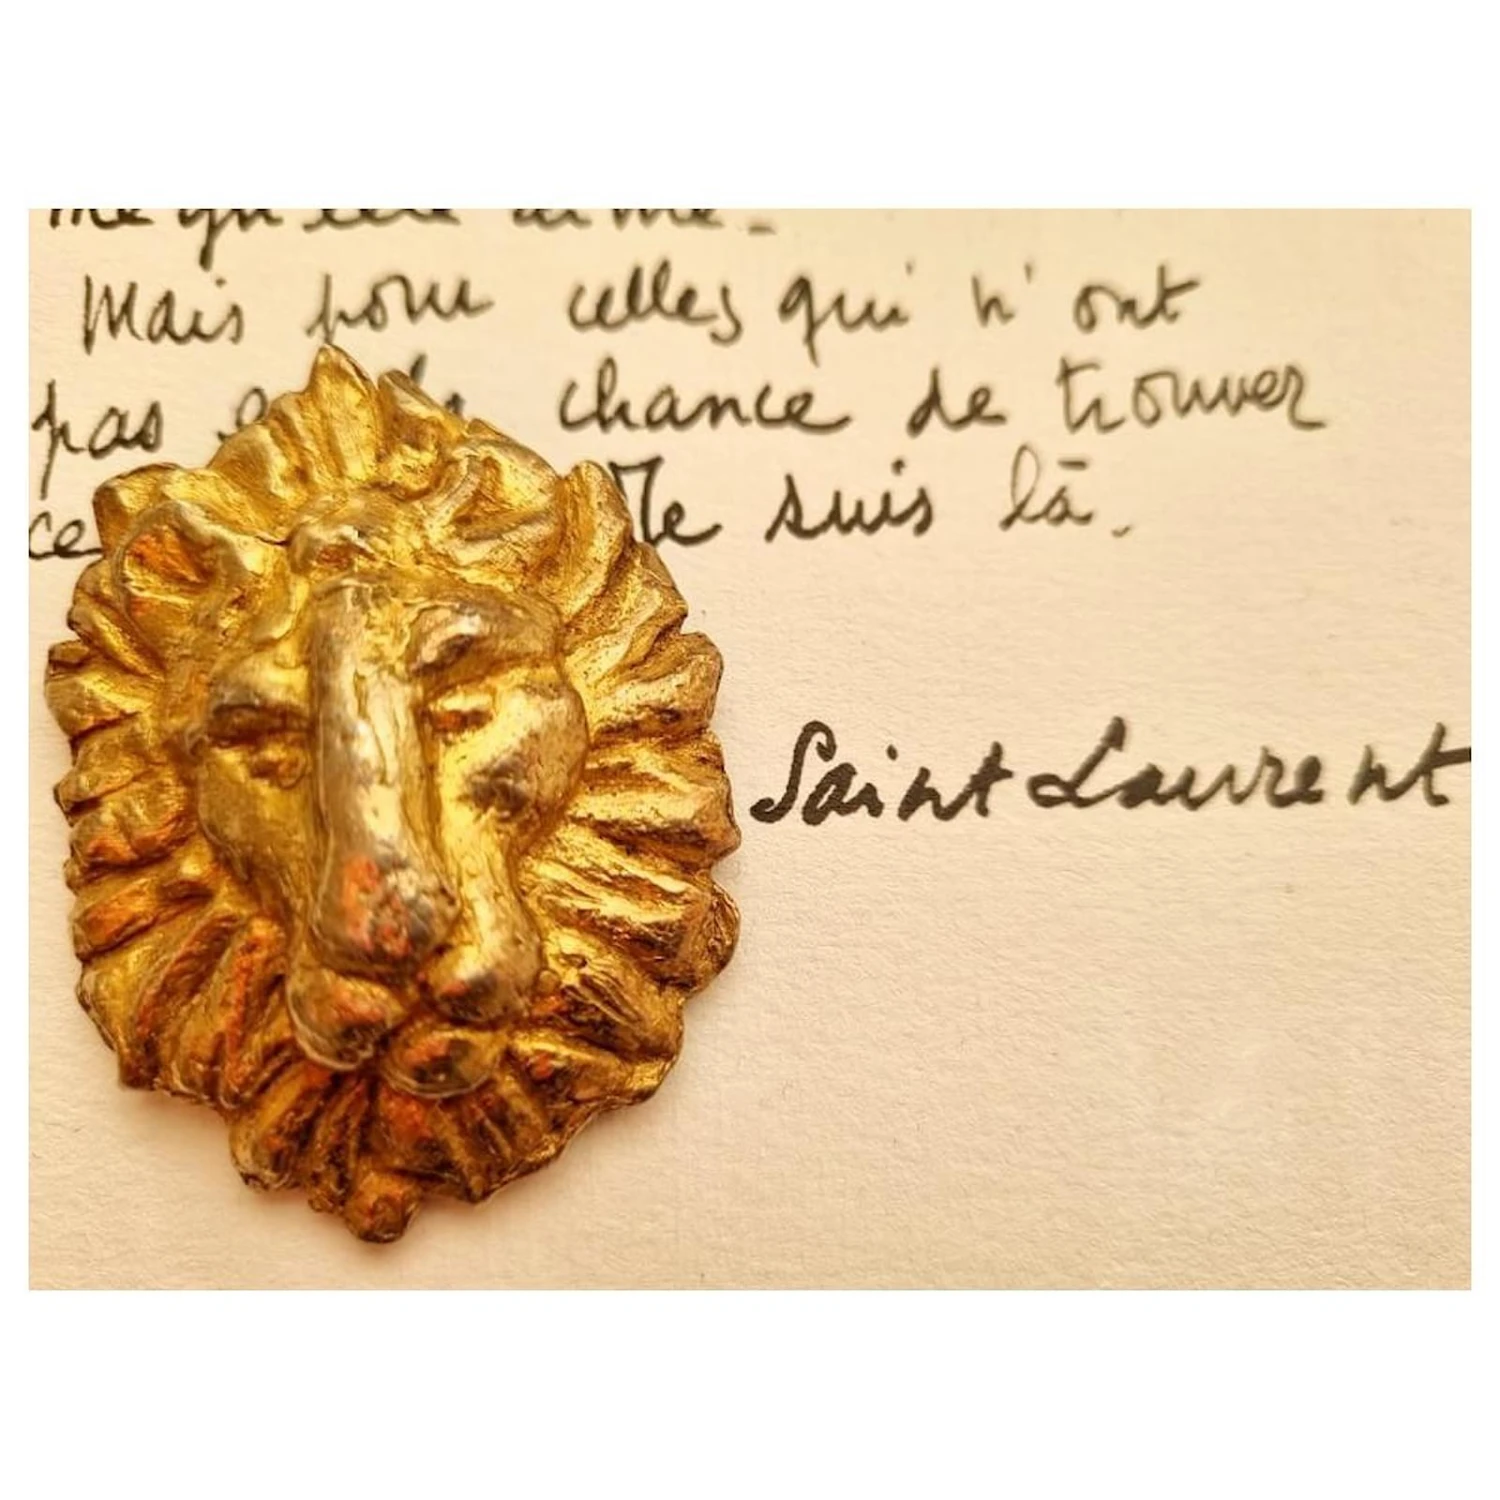 me qu'elle aime.
Mais pour celles qui n'ont
pas chance de trouver
ce Je suis là.
Saint Laurent